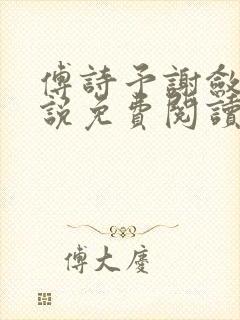 傅詩予謝斂
說免費閱讀
傅大慶